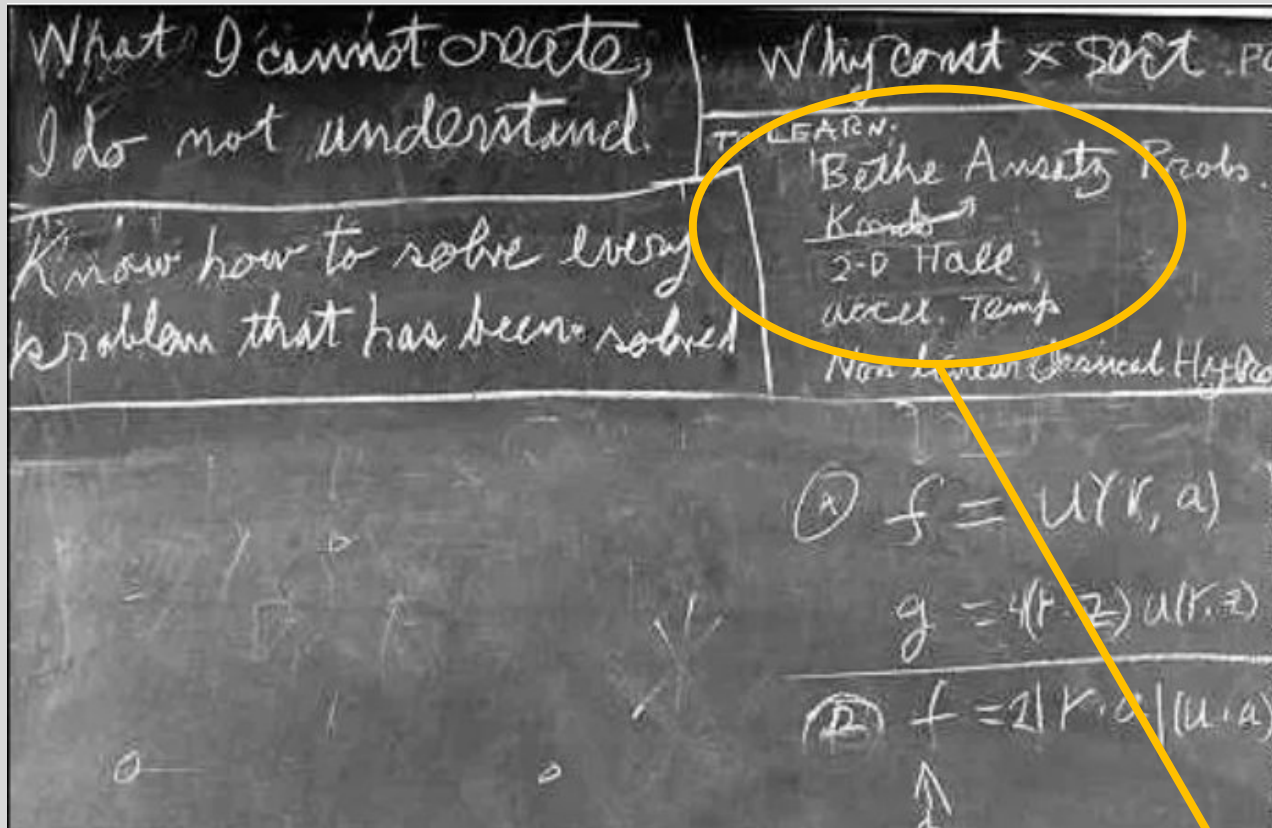 What I cannot create,
I do not understand.
Know how to solve every
problem that has been solved
Why const × sort . PO
TO LEARN:
Bethe Ansatz Probs.
Kondo
2-D Hall
accel. Temp
Non Linear Classical Hydro
(A) f = u(r, a)
g = 4(r·z) u(r·z)
(B) f = 2|r·a|(u·a)